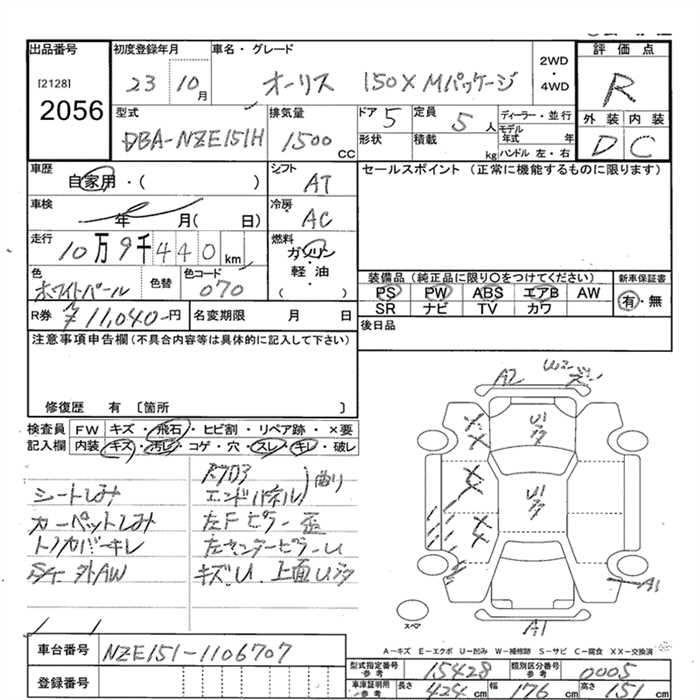 出品番号 初度登録年月 車名・グレード 評価点
[2128] 2056
23 10月 オーリス 150X Mパッケージ
2WD・4WD
R
型式 排気量 ドア 5 定員 5人 ディーラー・並行
DBA-NZE151H 1500cc
形状 積載 kg モデル年式 年
ハンドル 左・右
外装 内装
D C
車歴 自家用・( ) シフト AT
セールスポイント (正常に機能するものに限ります)
車検 年 月( 日) 冷房 AC
走行 10万9千440km 燃料 ガソリン・軽・油( )
色 ホワイトパール 色替 色コード 070
装備品 (純正品に限り○をつけてください) 新車保証書
PS PW ABS エアB AW 有・無
SR ナビ TV カワ
R券 ¥11,040-円 名変期限 月 日
後日品
注意事項申告欄(不具合内容等は具体的に記入して下さい)
修復歴 有 〔箇所 〕
検査員記入欄 FW キズ・飛石・ヒビ割・リペア跡・×要
内装 キズ・汚レ・コゲ・穴・スレ・キレ・破レ
シートしみ
カーペットしみ
トノカバーキレ
外AW
エンドパネル 曲り
左Fピラー 歪
左センターピラーU
キズU 上面U
A2
U1
U1
A1
スペア
A1
A-キズ E-エクボ U-凹み W-補修跡 S-サビ C-腐食 XX-交換済
車台番号 NZE151-1106707
登録番号
型式指定番号 参考 15428 類別区分番号 参考 0005
車庫証明用 参考 長さ 424cm 幅 176cm 高さ 151cm